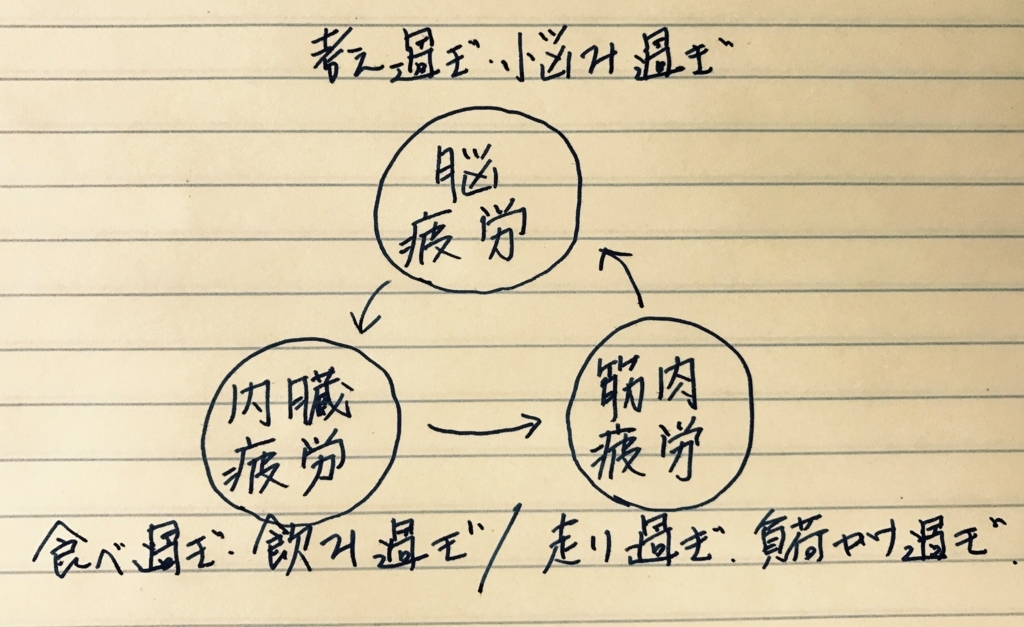 考え過ぎ・悩み過ぎ
脳
疲労
内臓
疲労
筋肉
疲労
食べ過ぎ・飲み過ぎ/走り過ぎ.負荷かけ過ぎ.